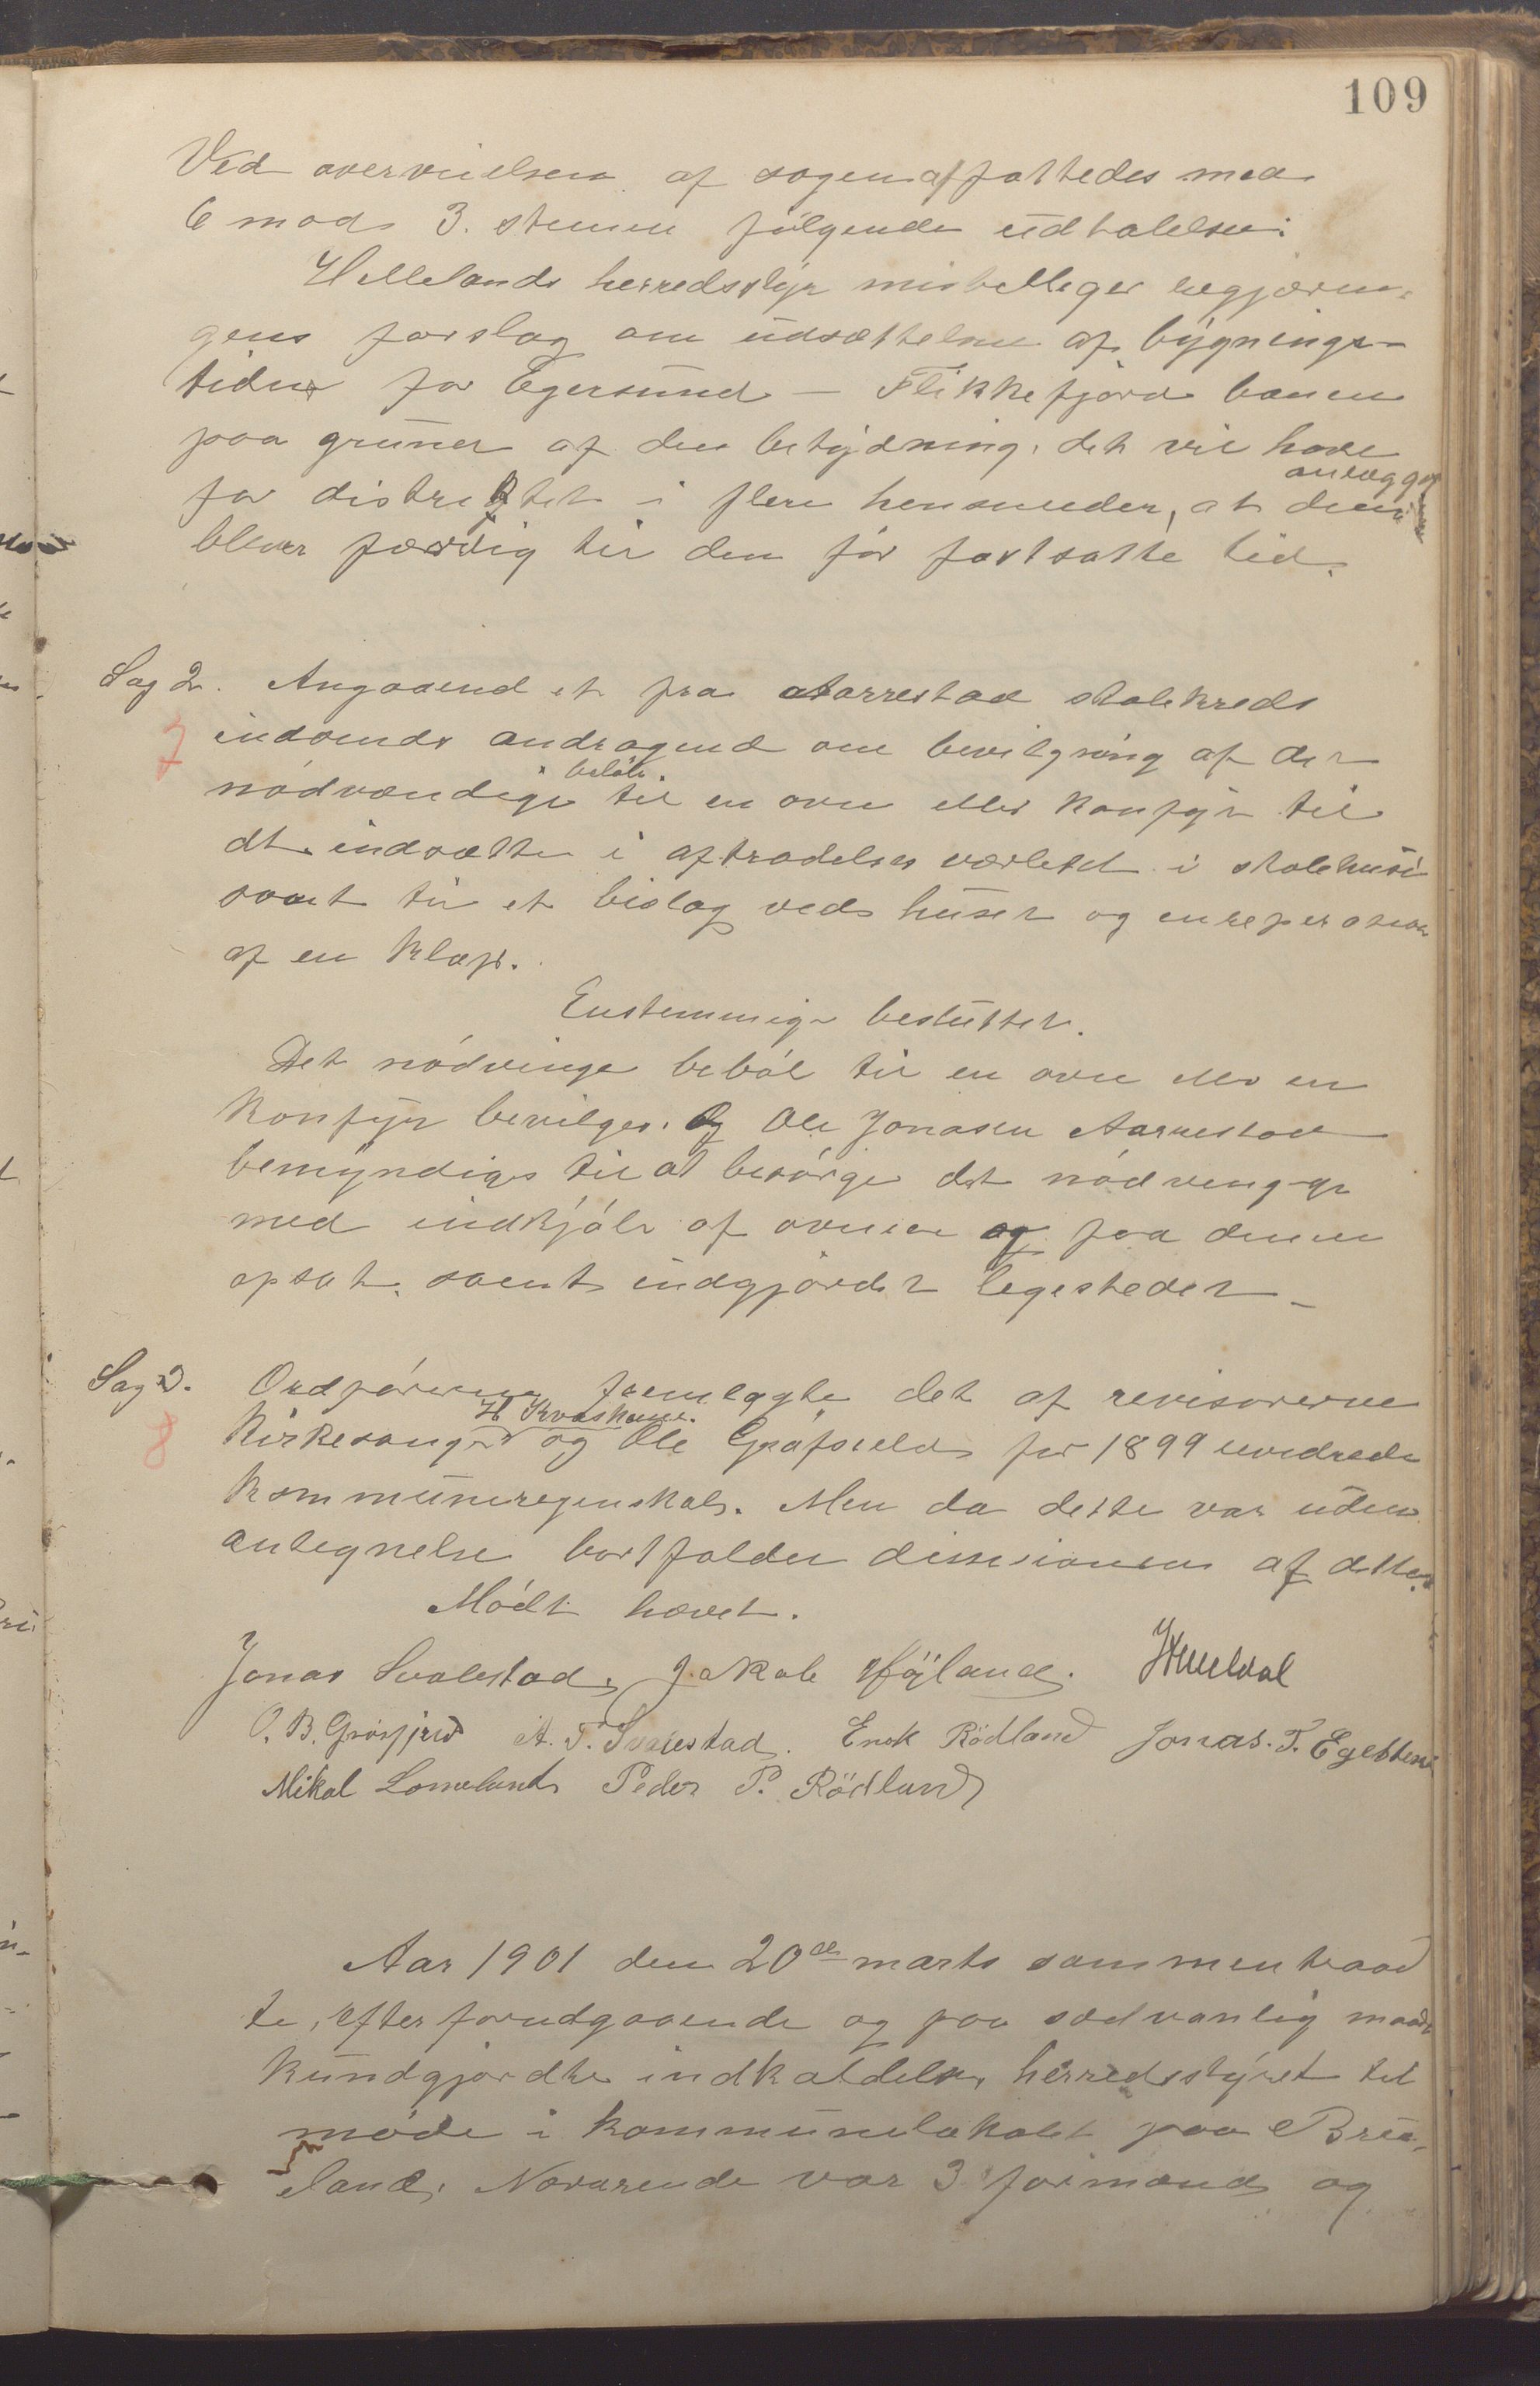 109
Ved overveielsen af sagen affattedes med
6 mod 3. stemmer følgende udtalelse:
Hellelands herredsstyr misbilliger regjerin-
gens forslag om udsættelse af bygnings-
tiden for Egersund - Flikkefjord banen
paa grund af den betydning, det vil have
for distriktet i flere hensender, at denne anlægget
bliver færdig til den før fastsatte tid.
Sag 2. Angaaend et fra Aarrestad skolekreds
7
indsends andragend om bevilgning af det
nødvændige beløb til en ovn eller konfyr til
at indsætte i aftrædelses værelset i skolehuset
samt til et bislag ved huset og en reperation
af en klaft.
Enstemmig besluttet.
Det nødvinge beløb til en ovn eller en
konfyr bevilges. Og Ole Jonasen Aarrestad
bemyndiges til at besørge det nødvengige
med indkjøb af ovnen og faa denne
opsat, samt indgjørdet legestedet
Sag 3. Ordføreren fremlagte det af revisorerne
8
Kirkesanger H Kvashaug og Ole Grøfsield for 1899 reviderede
kommuneregenskab. Men da dette var uden
antegnelse bortfalder desisionen af dette.
Mødt hævet.
Jonas Svalestad, Jakob Høyland.
O. B. Grøsfjeld A. T. Svalestad. Enok Rødland Jonas. T. Egebben
Mikal Lomeland Peder P. Rödland
Aar 1901 den 20de marts sammentraad
te, efter forudgaaende og paa sædvanlig maade
kundgjordte indkaldelse, herredsstyret til
møde i kommunelokalet paa Brue-
land. Nærærende var 3 formænd og